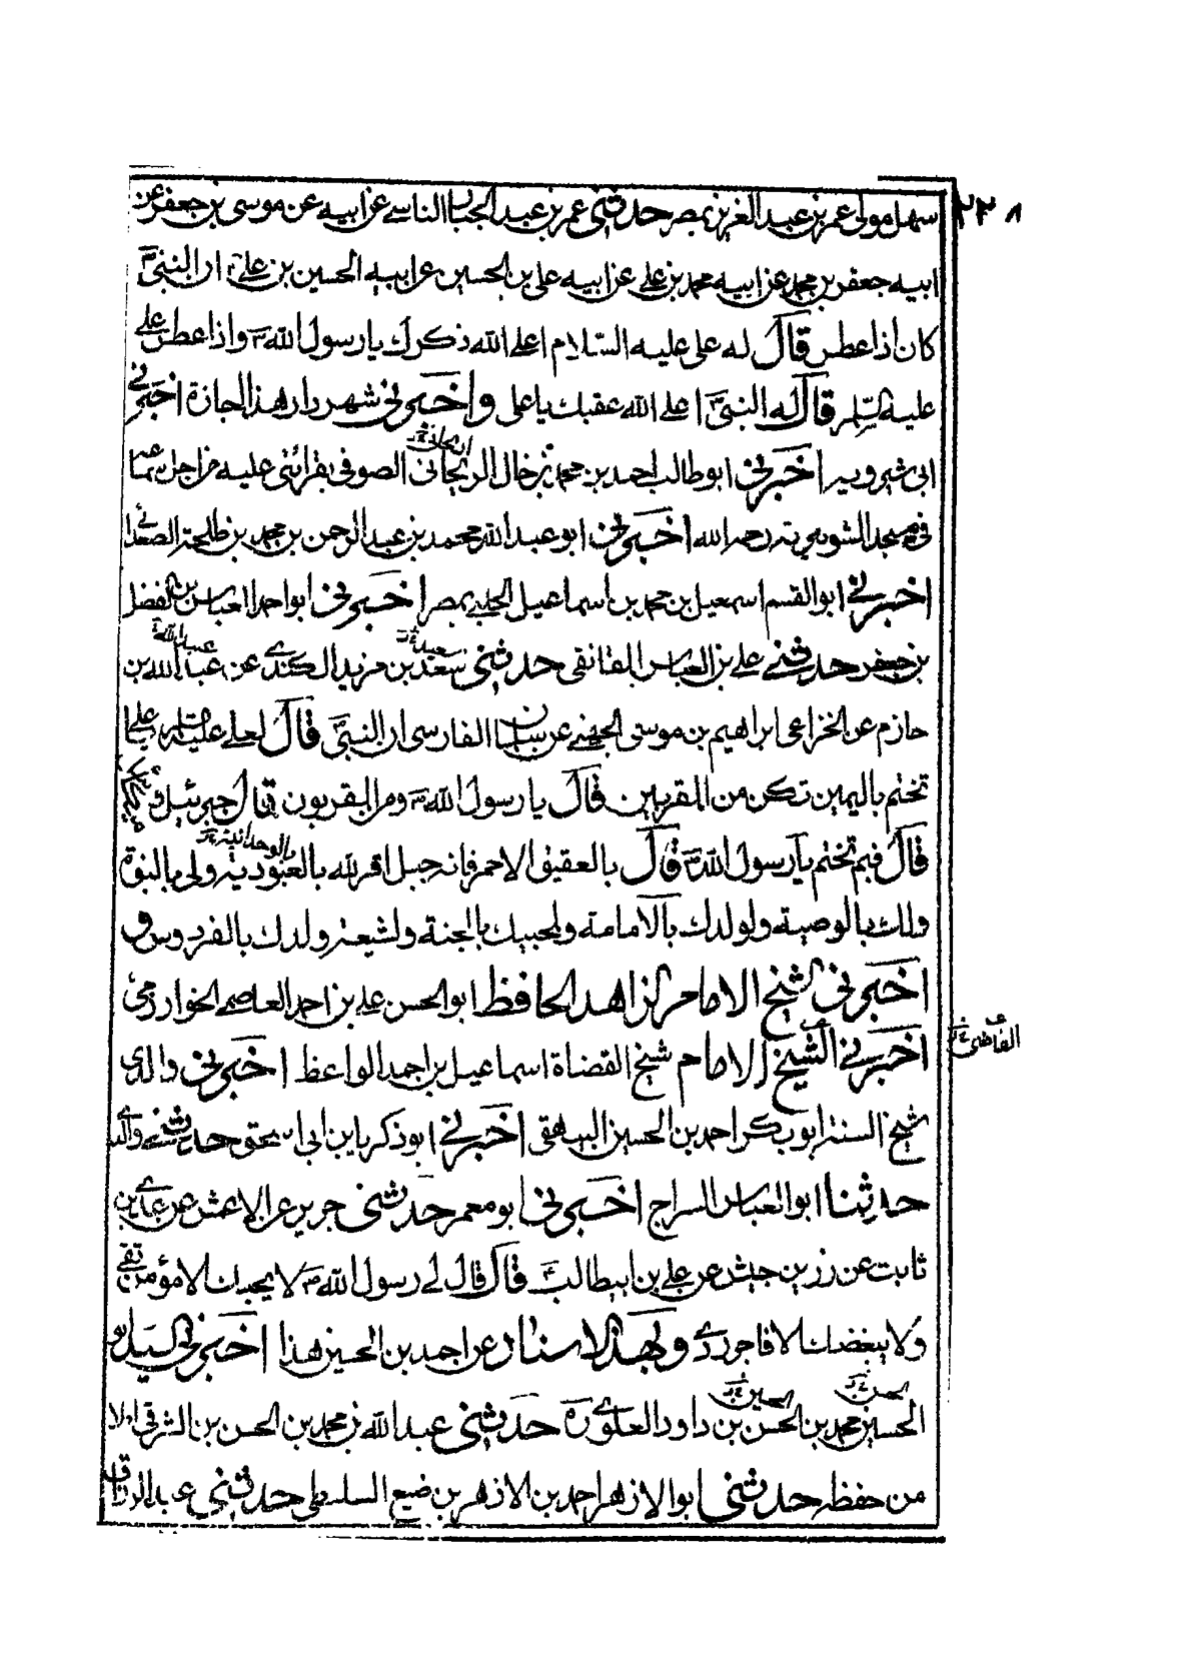 ٢٣٨
سهل مولى عمر بن عبد العزيز بمصر حدثني عمر بن عبد الجبار الناسي عن ابيه عن موسى بن جعفر عن
ابيه جعفر بن محمد عن ابيه محمد بن علي عن ابيه علي بن الحسين عن ابيه الحسين بن علي ان النبي
كان اذا عطس قال له علي عليه السلام اعلى الله ذكرك يا رسول الله واذا عطس علي
عليه السلم قال له النبي اعلى الله عقبك يا علي واخبرني شهردار هذا اجازة اخبرني
ابي شيرويه اخبرني ابو طالب احمد بن محمد بن خال الريحاني الصوفي بقرائتي عليه من اصل سماعه
في مسجد الشونيزية رحمه الله اخبرني ابو عبد الله محمد بن عبد الرحمن بن محمد بن طلحة الصعدائي
اخبرني ابو القسم اسمعيل بن محمد بن اسماعيل الحلبي بمصر اخبرني ابو احمد العباس بن الفضل
بن جعفر حدثني علي بن العباس المقانعي حدثني سعد بن مزيد الكندي عن عبد الله بن
حازم عن الخزاعي ابراهيم بن موسى الجهني عن سلمان الفارسي ان النبي قال لعلي عليه السلم يا علي
تختم باليمين تكن من المقربين قال يا رسول الله ومن المقربون قال جبرئيل وميكائيل
قال فبم تختم يا رسول الله قال بالعقيق الاحمر فانه جبل اقر لله بالعبودية ولي بالنبوة
بالوحدانية
ولك بالوصية ولولدك بالامامة ولمحبيك بالجنة ولشيعة ولدك بالفردوس و
اخبرني الشيخ الامام الزاهد الحافظ ابو الحسن علي بن احمد العاصمي الخوارزمي
اخبرني الشيخ الامام شيخ القضاة اسماعيل بن احمد الواعظ اخبرني والدي
القاضي
شيخ السنة ابو بكر احمد بن الحسين البيهقي اخبرني ابو زكريا بن ابي اسحق حدثني والدي
حدثنا ابو العباس السراج اخبرني ابو معمر حدثني جرير عن الاعمش عن عدي بن
ثابت عن زر بن حبيش عن علي بن ابيطالب قال قال لي رسول الله لا يحبك الا مؤمن تقي
ولا يبغضك الا فاجر ردي وبهذا الاسناد عن احمد بن الحسين هذا اخبرني السيد ابو
الحسين محمد بن الحسن بن داود العلوي ره حدثني عبد الله بن محمد بن الحسن بن الشرقي املا
من حفظه حدثني ابو الازهر احمد بن الازهر بن ضيع السليطي حدثني عبد الرزاق